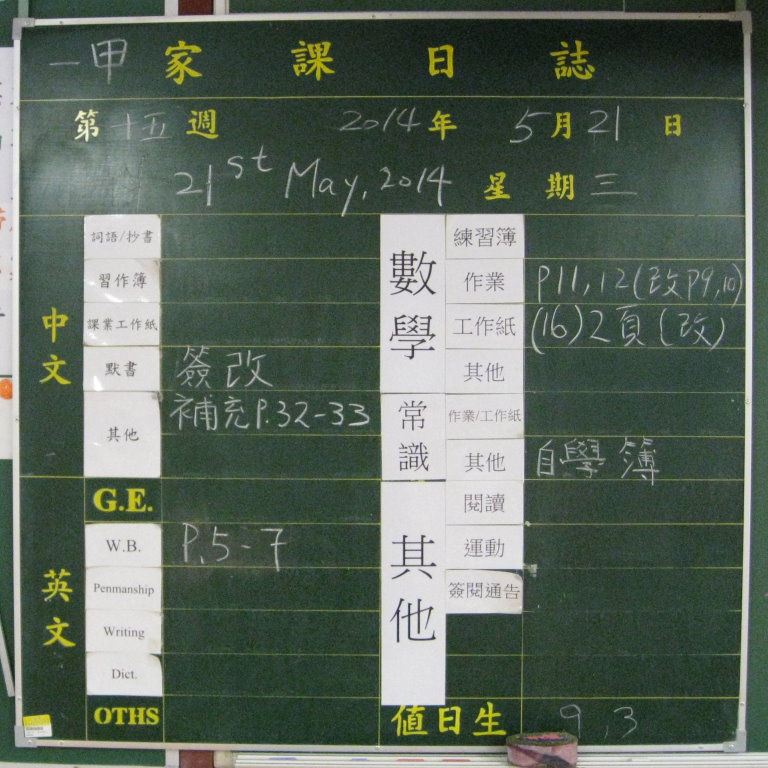 一甲 家課日誌
第十五週 2014年 5月21日
21st May, 2014 星期三
中文
詞語/抄書
習作簿
課業工作紙
默書 簽改
其他 補充P.32-33
英文
G.E.
W.B. P.5-7
Penmanship
Writing
Dict.
OTHS
數學
練習簿
作業 P11,12(改P9,10)
工作紙 (16)2頁(改)
其他
常識
作業/工作紙
其他 自學簿
其他
閱讀
運動
簽閱通告
值日生 9,3